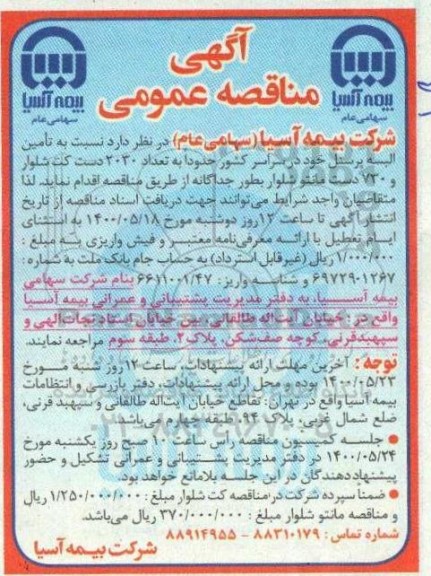 آگهی
مناقصه عمومی
بیمه آسیا
سهامی عام
بیمه آسیا
سهامی عام
شرکت بیمه آسیا (سهامی عام) در نظر دارد نسبت به تأمین
البسه پرسنل خود در سراسر کشور حدوداً به تعداد ۲۰۳۰ دست کت شلوار
و ۷۳۰ دست مانتو شلوار بطور جداگانه از طریق مناقصه اقدام نماید. لذا
متقاضیان واجد شرایط می‌توانند جهت دریافت اسناد مناقصه از تاریخ
انتشار آگهی تا ساعت ۱۲ روز دوشنبه مورخ ۱۴۰۰/۰۵/۱۸ به استثنای
ایام تعطیل با ارائه معرفی‌نامه معتبر و فیش واریزی به مبلغ :
۱/۰۰۰/۰۰۰ ریال (غیر قابل استرداد) به حساب جام بانک ملت به شماره :
۶۹۷۲۹۰۱۲۶۷ و شناسه واریز: ۶۶۱۱۰۰۱/۴۷ بنام شرکت سهامی
بیمه آسیا، به دفتر مدیریت پشتیبانی و عمرانی بیمه آسیا
واقع در : خیابان آیت‌اله طالقانی، بین خیابان استاد نجات‌الهی و
سپهبد قرنی، کوچه صف‌شکن، پلاک ۲، طبقه سوم مراجعه نمایند.
توجه : آخرین مهلت ارائه پیشنهادات، ساعت ۱۲ روز شنبه مورخ
۱۴۰۰/۰۵/۲۳ بوده و محل ارائه پیشنهادات، دفتر بازرسی و انتظامات
بیمه آسیا واقع در تهران: تقاطع خیابان آیت‌اله طالقانی و سپهبد قرنی،
ضلع شمال غربی، پلاک ۹۴، طبقه چهارم می‌باشد.
● جلسه کمیسیون مناقصه راس ساعت ۱۰ صبح روز یکشنبه مورخ
۱۴۰۰/۰۵/۲۴ در دفتر مدیریت پشتیبانی و عمرانی تشکیل و حضور
پیشنهاد دهندگان در این جلسه بلامانع خواهد بود.
● ضمنا سپرده شرکت در مناقصه کت شلوار مبلغ : ۱/۲۵۰/۰۰۰/۰۰۰ ریال
و مناقصه مانتو شلوار مبلغ : ۳۷۰/۰۰۰/۰۰۰ ریال می‌باشد.
شماره تماس : ۸۸۳۱۰۱۷۹ - ۸۸۹۱۴۹۵۵
شرکت بیمه آسیا